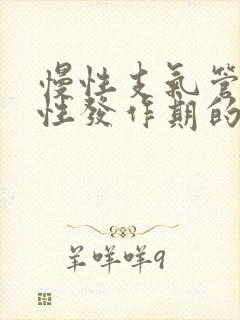 慢性支氣管
性發作期的
羊咩咩9